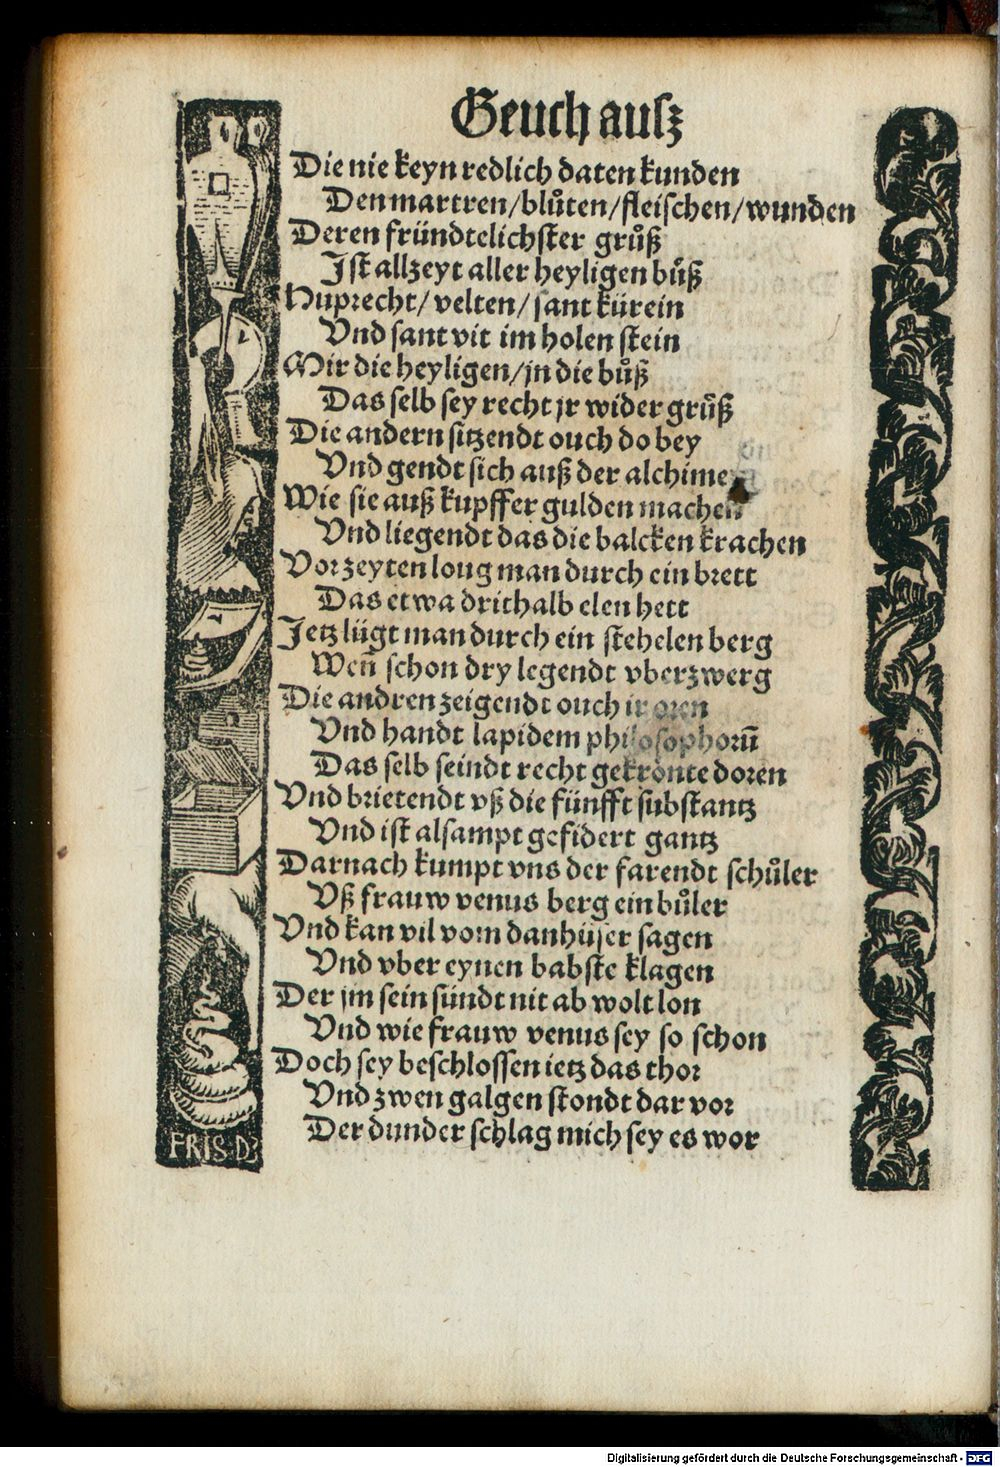 Geuch ausz
Die nie keyn redlich daten kunden
Den martren/blůten/fleischen/wunden
Deren fründtelichster grůß
Ist allzeyt aller heyligen bůß
Huprecht/velten/sant kürein
Vnd sant vit im holen stein
Mir die heyligen/jn die bůß
Das selb sey recht jr wider grůß
Die andern sitzendt ouch do bey
Vnd gendt sich auß der alchimey
Wie sie auß kupffer gulden machen
Vnd liegendt das die balcken krachen
Vor zeyten loug man durch ein brett
Das etwa drithalb elen hett
Jetz lügt man durch ein stehelen berg
Weñ schon dry legendt vberzwerg
Die andren zeigendt ouch ir oren
Vnd handt lapidem philosophorum̃
Das selb seindt recht gekrönte doren
Vnd brietendt vß die fünfft substantz
Vnd ist alsampt gefidert gantz
Darnach kumpt vns der farendt schůler
Vß frauw venus berg ein bůler
Vnd kan vil vom danhüser sagen
Vnd vber eynen babste klagen
Der jm sein sündt nit ab wolt lon
Vnd wie frauw venus sey so schon
Doch sey beschlossen ietz das thor
Vnd zwen galgen stondt dar vor
Der dunder schlag mich sey es wor
FRIS·DZ
Digitalisierung gefördert durch die Deutsche Forschungsgemeinschaft - DFG